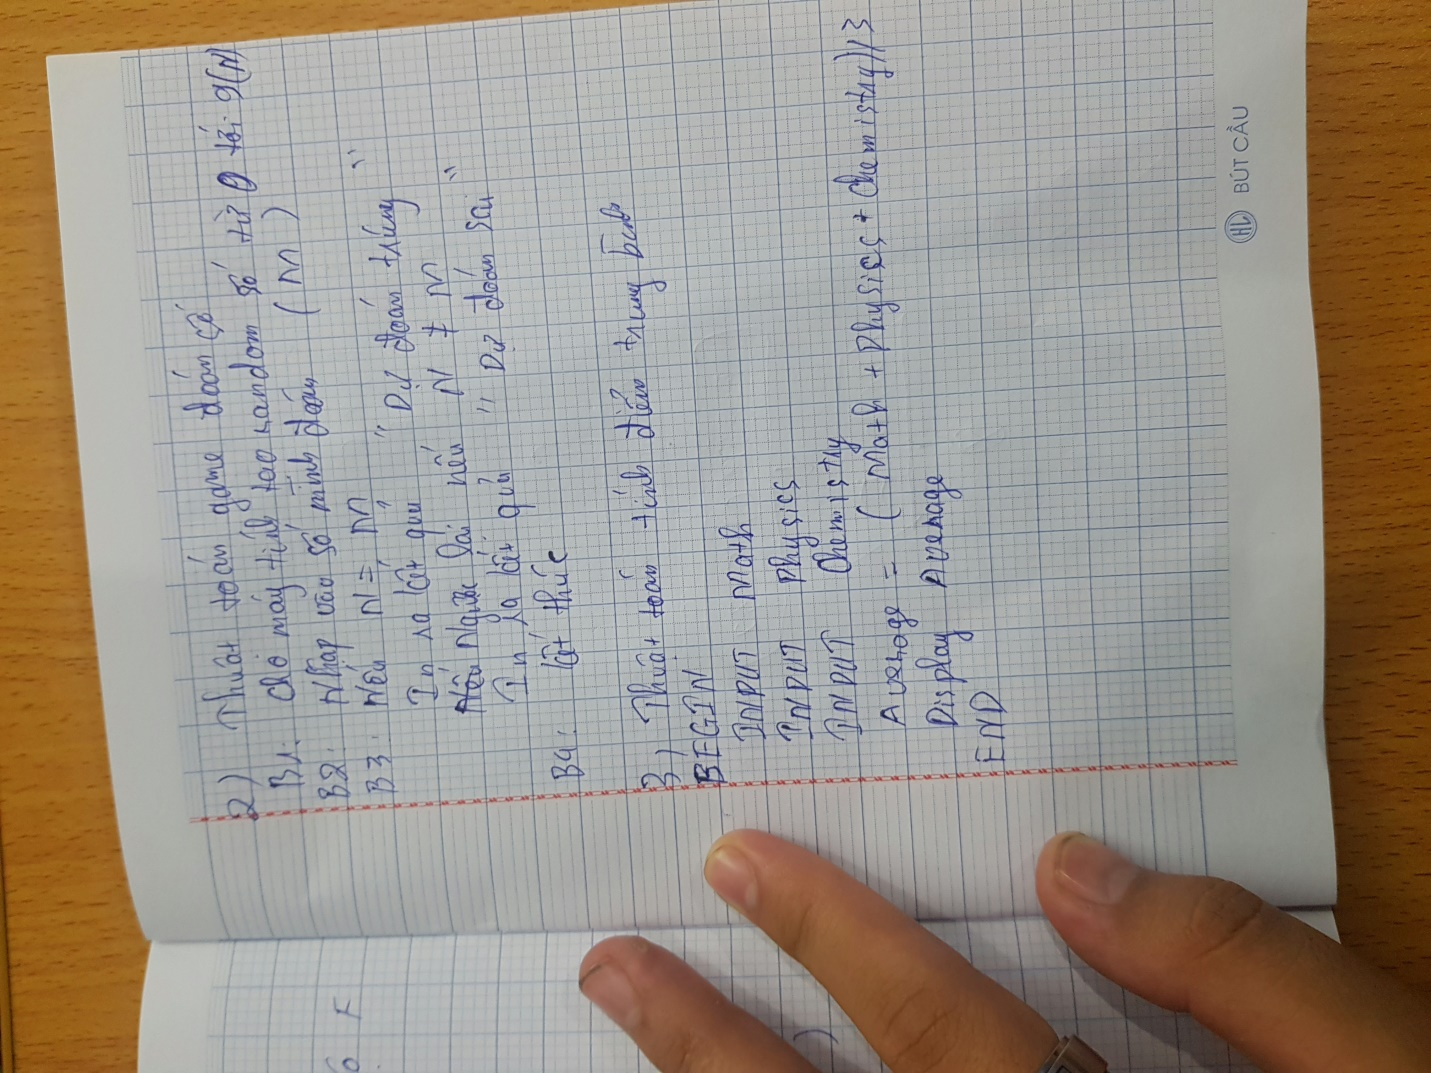 2) Thuật toán game đoán số
B1. Cho máy tính tạo random số từ 0 tới 9(N)
B2. Nhập vào số mình đoán (M)
B3. Nếu N = M,
In ra kết quả " Dự đoán trúng "
Ngược lại nếu N ≠ M
In ra kết quả " Dự đoán sai "
B4. kết thúc
3) Thuật toán tính điểm trung bình
BEGIN
INPUT Math
INPUT Physics
INPUT Chemistry
Average = ( Math + Physics + Chemistry)/3
Display Average
END
HL BÚT CẦU
F